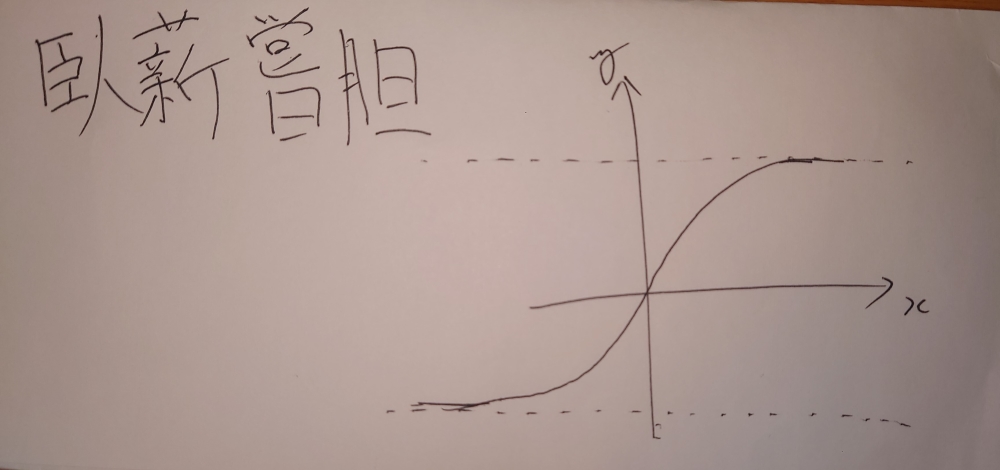 臥薪嘗胆
y
x